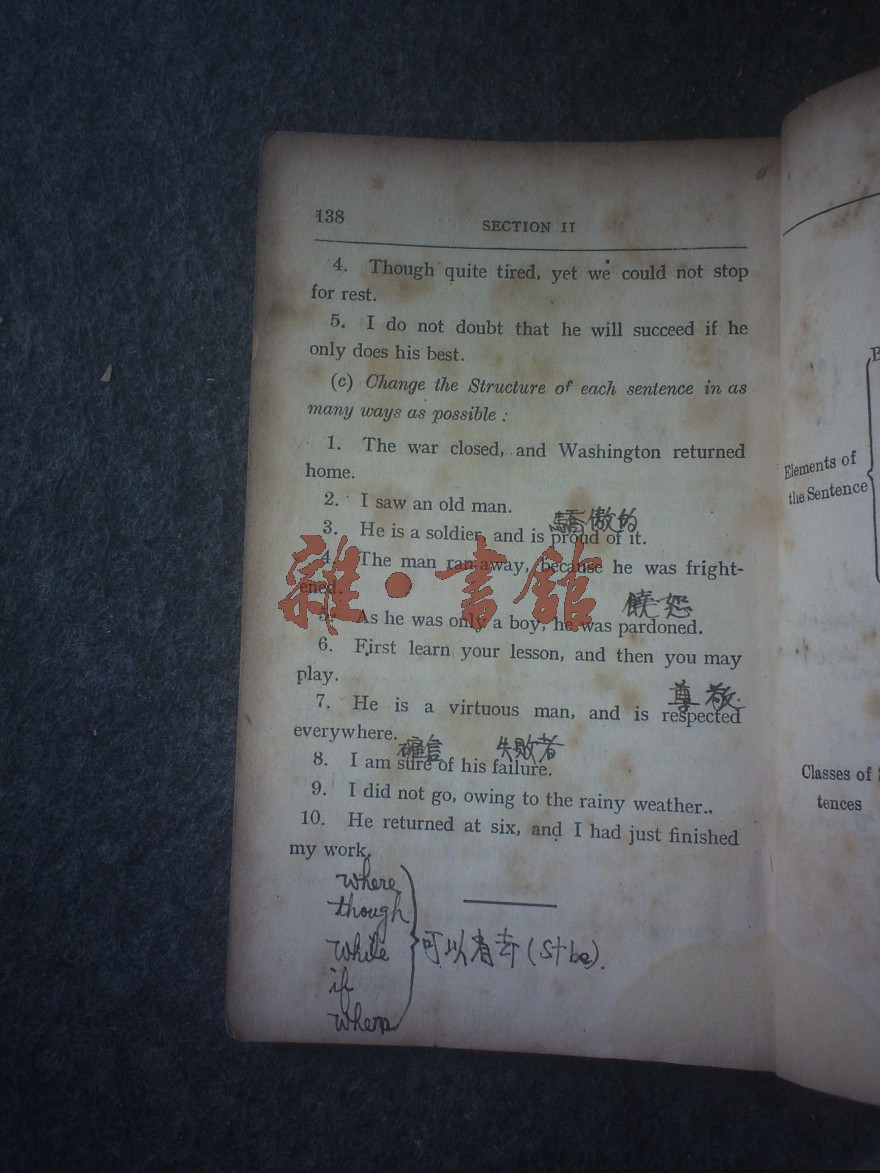 138
SECTION II
4. Though quite tired, yet we could not stop
for rest.
5. I do not doubt that he will succeed if he
only does his best.
(c) Change the Structure of each sentence in as
many ways as possible :
1. The war closed, and Washington returned
home.
2. I saw an old man.
驕傲的
3. He is a soldier, and is proud of it.
4. The man ran away, because he was fright-
ened.
饒恕
5. As he was only a boy, he was pardoned.
6. First learn your lesson, and then you may
play.
尊敬
7. He is a virtuous man, and is respected
everywhere.
確信 失敗者
8. I am sure of his failure.
9. I did not go, owing to the rainy weather..
10. He returned at six, and I had just finished
my work.
where
though
while
if
when
可以省去 (S+be).
雜·書館
Elements of
the Sentence
Classes of
tences